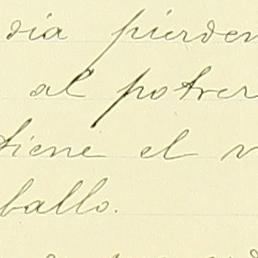 dia pierden
al potrer
tiene el v
ballo.